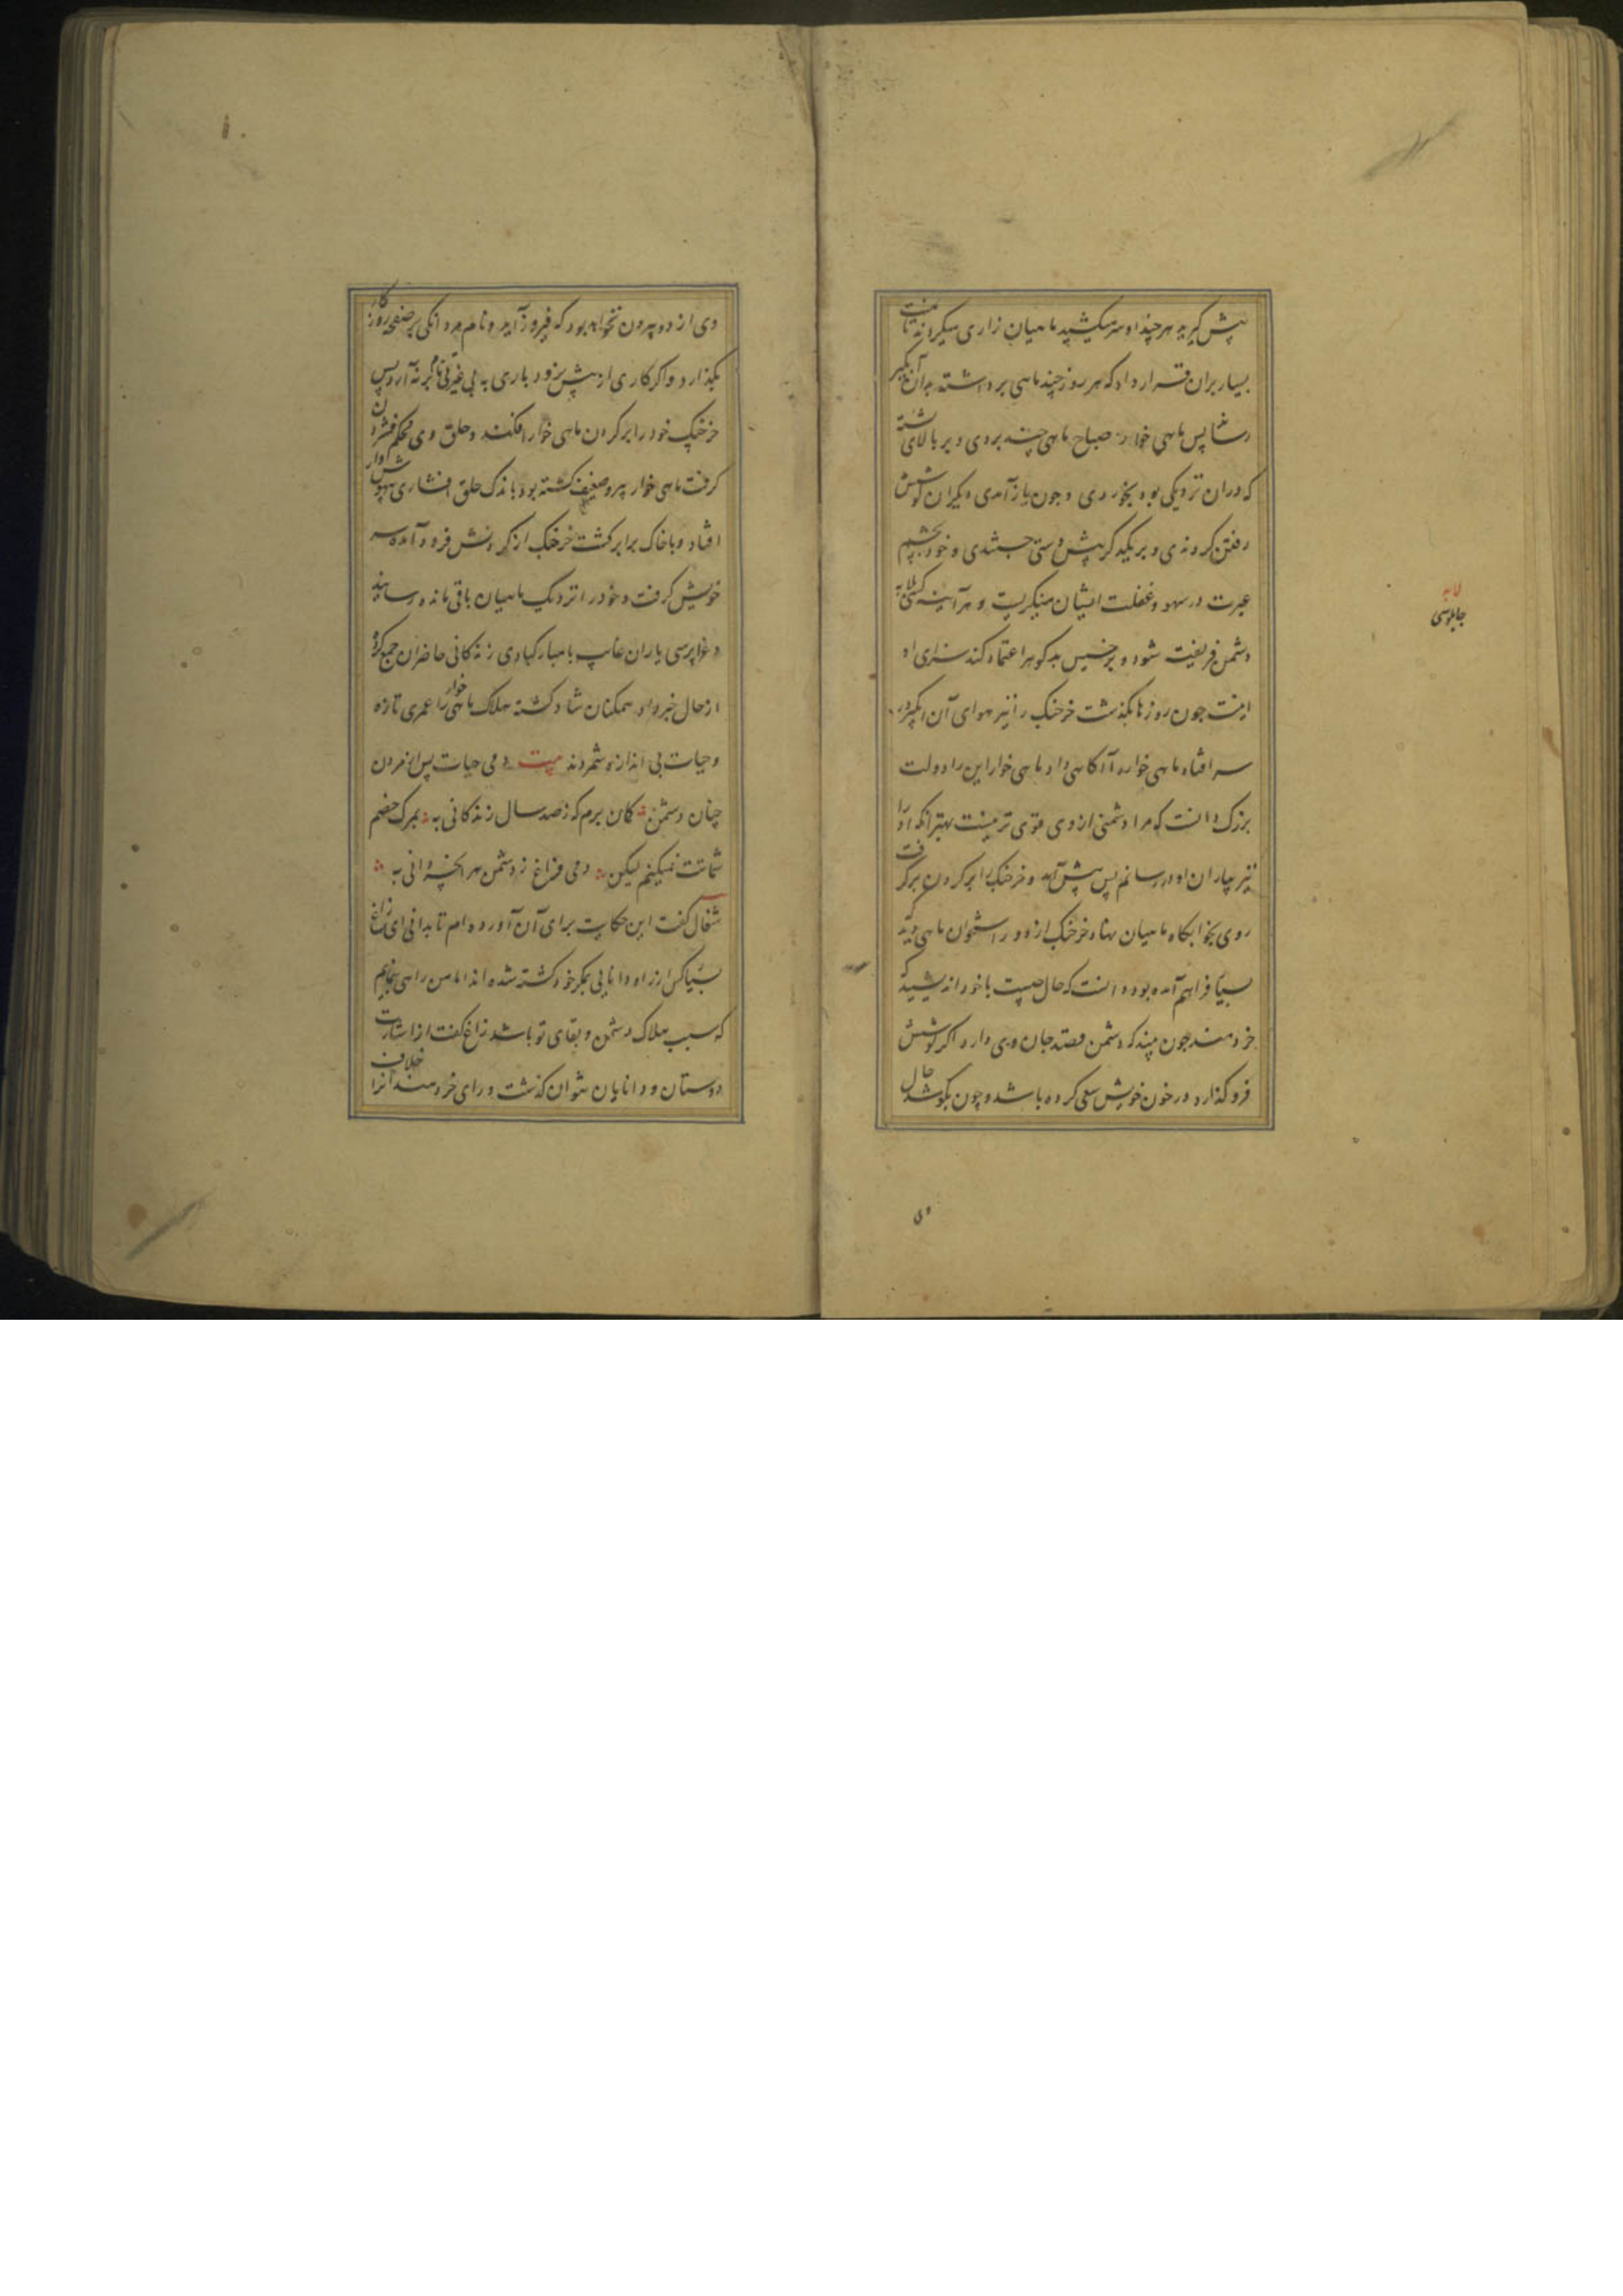 پیش کیرید هرچند او سر میکشید ماهیان زاری میکردند تا منت
بسیار بران قرار داد که هر روز چند ماهی برداشته بدان آبکیر
رساند پس ماهی خوار هر صباح ماهی چند بردی و بر بالای پشته
که دران نزدیکی بود بخوردی و چون باز آمدی دیکران کوشش
رفتن کردندی و بر یکدیکر پیش دستی جستندی و خود بچشم
عبرت در سهو و غفلت ایشان مینکریست و هر آینه کسی که بلابه
دشمن فریفته شود و بر خسیس بدکوهر اعتماد کند سزای او
اینست چون روزها بکذشت خرچنک را نیز هوای آن آبکیر در
سر افتاد ماهی خوار را آکاهی داد ماهی خوار این را دولت
بزرک دانست که مرا دشمنی از وی قوی تر نیست بهتر آنکه او را
نیز بیاران او در رسانم پس پیش آمد و خرچنک را بر کردن برکرفت
روی بخوابکاه ماهیان نهاد خرچنک از دور استخوان ماهی دید که
بسیار فراهم آمده بود دانست که حال چیست با خود اندیشید که
خردمند چون بیند که دشمن قصد جان وی دارد اکر کوشش
فرو کذارد در خون خویش سعی کرده باشد و چون بکوشد حال
وی
لابه
چاپلوسی
۱۰
وی از دو بیرون نخواهد بود که فیروز آید و نام مردانکی بر صفحه روزکار
بکذارد و اکر کاری از پیش نرود باری به بی غیرتی نام بر نه آرد پس
خرچنک خود را بر کردن ماهی خوار افکند و حلق وی محکم فشردن
کرفت ماهی خوار پیر و ضعیف کشته بود باندک حلق افشاری بیهوش وار
افتاد و با خاک برابر کشت خرچنک از کردنش فرود آمده سر
خویش کرفت و خود را نزدیک ماهیان باقی مانده رسانید
و عزاپرسی یاران غایب با مبارکبادی زندکانی حاضران جمع کرد
از حال خبر داد همکنان شاد کشته هلاک ماهی خوار را عمری تازه
و حیات بی اندازه شمردند بیت دمی حیات پس از مردن
چنان دشمن کمان برم که ز صد سال زندکانی به بمرک خصم
شماتت نمیکنم لیکن دمی فراغ ز دشمن بهر آنچه دانی به
شغال کفت این حکایت برای آن آورده ام تا بدانی ای زاغ
بسیار کس از زاد دانایی بمکر خود کشته شده اند اما من راهی نمایم
که سبب هلاک دشمن و بقای تو باشد زاغ کفت از اشارت
دوستان و دانایان نتوان کذشت و رای خردمندانرا خلاف